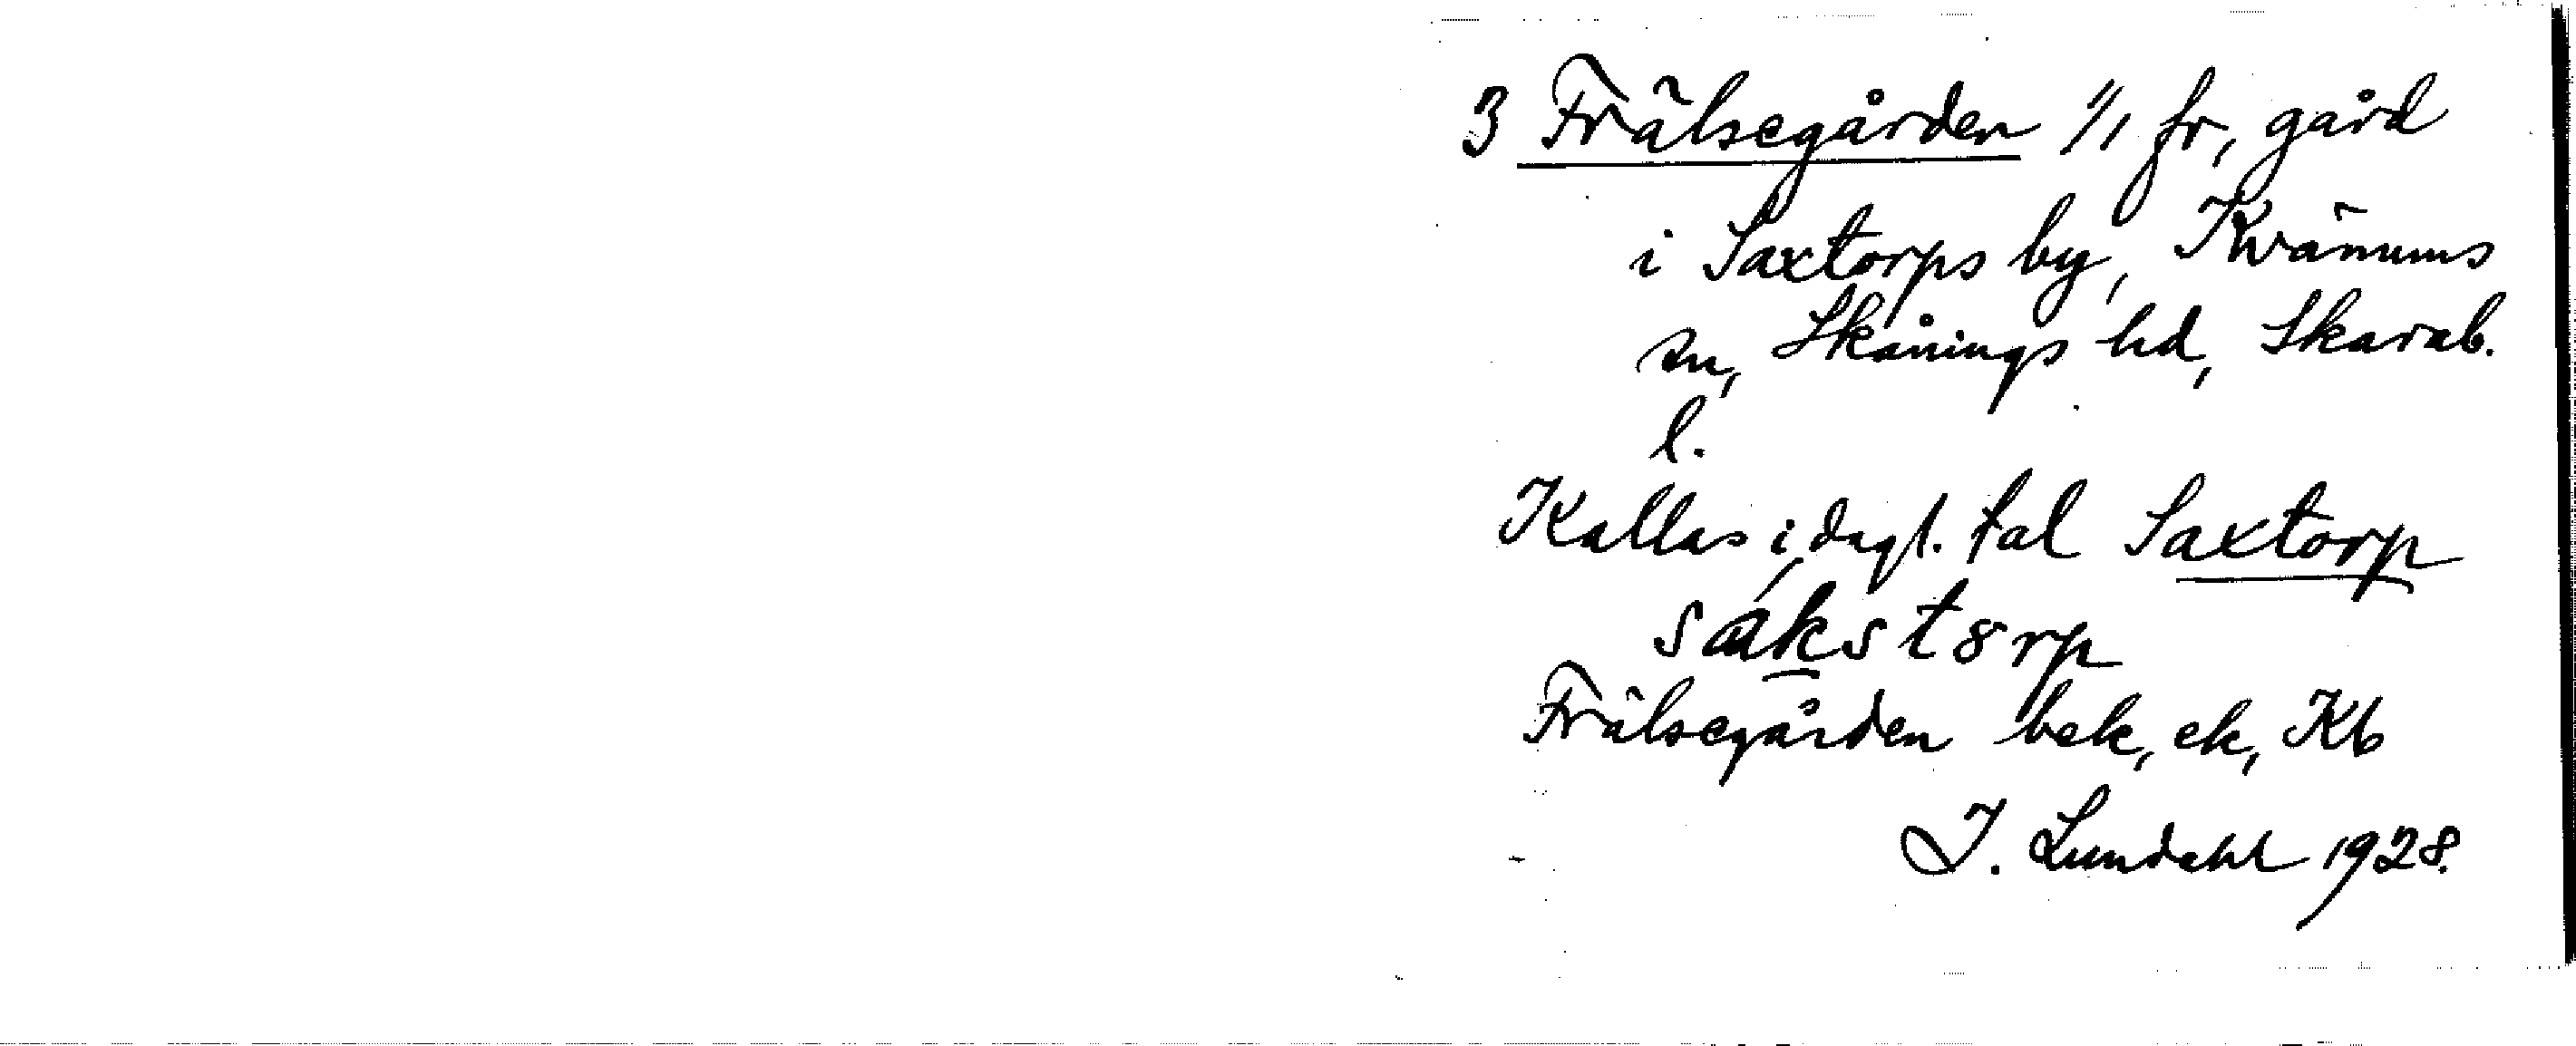 3 Frälsegården 1/1 fr, gård
i Saxtorps by, Kvänums
sn, Skånings hd, Skarab.
l.
Kallas i dagl. tal Saxtorp
sákstȣrp
Frälsegården bek, ek, Kb
J. Lundahl 1928.